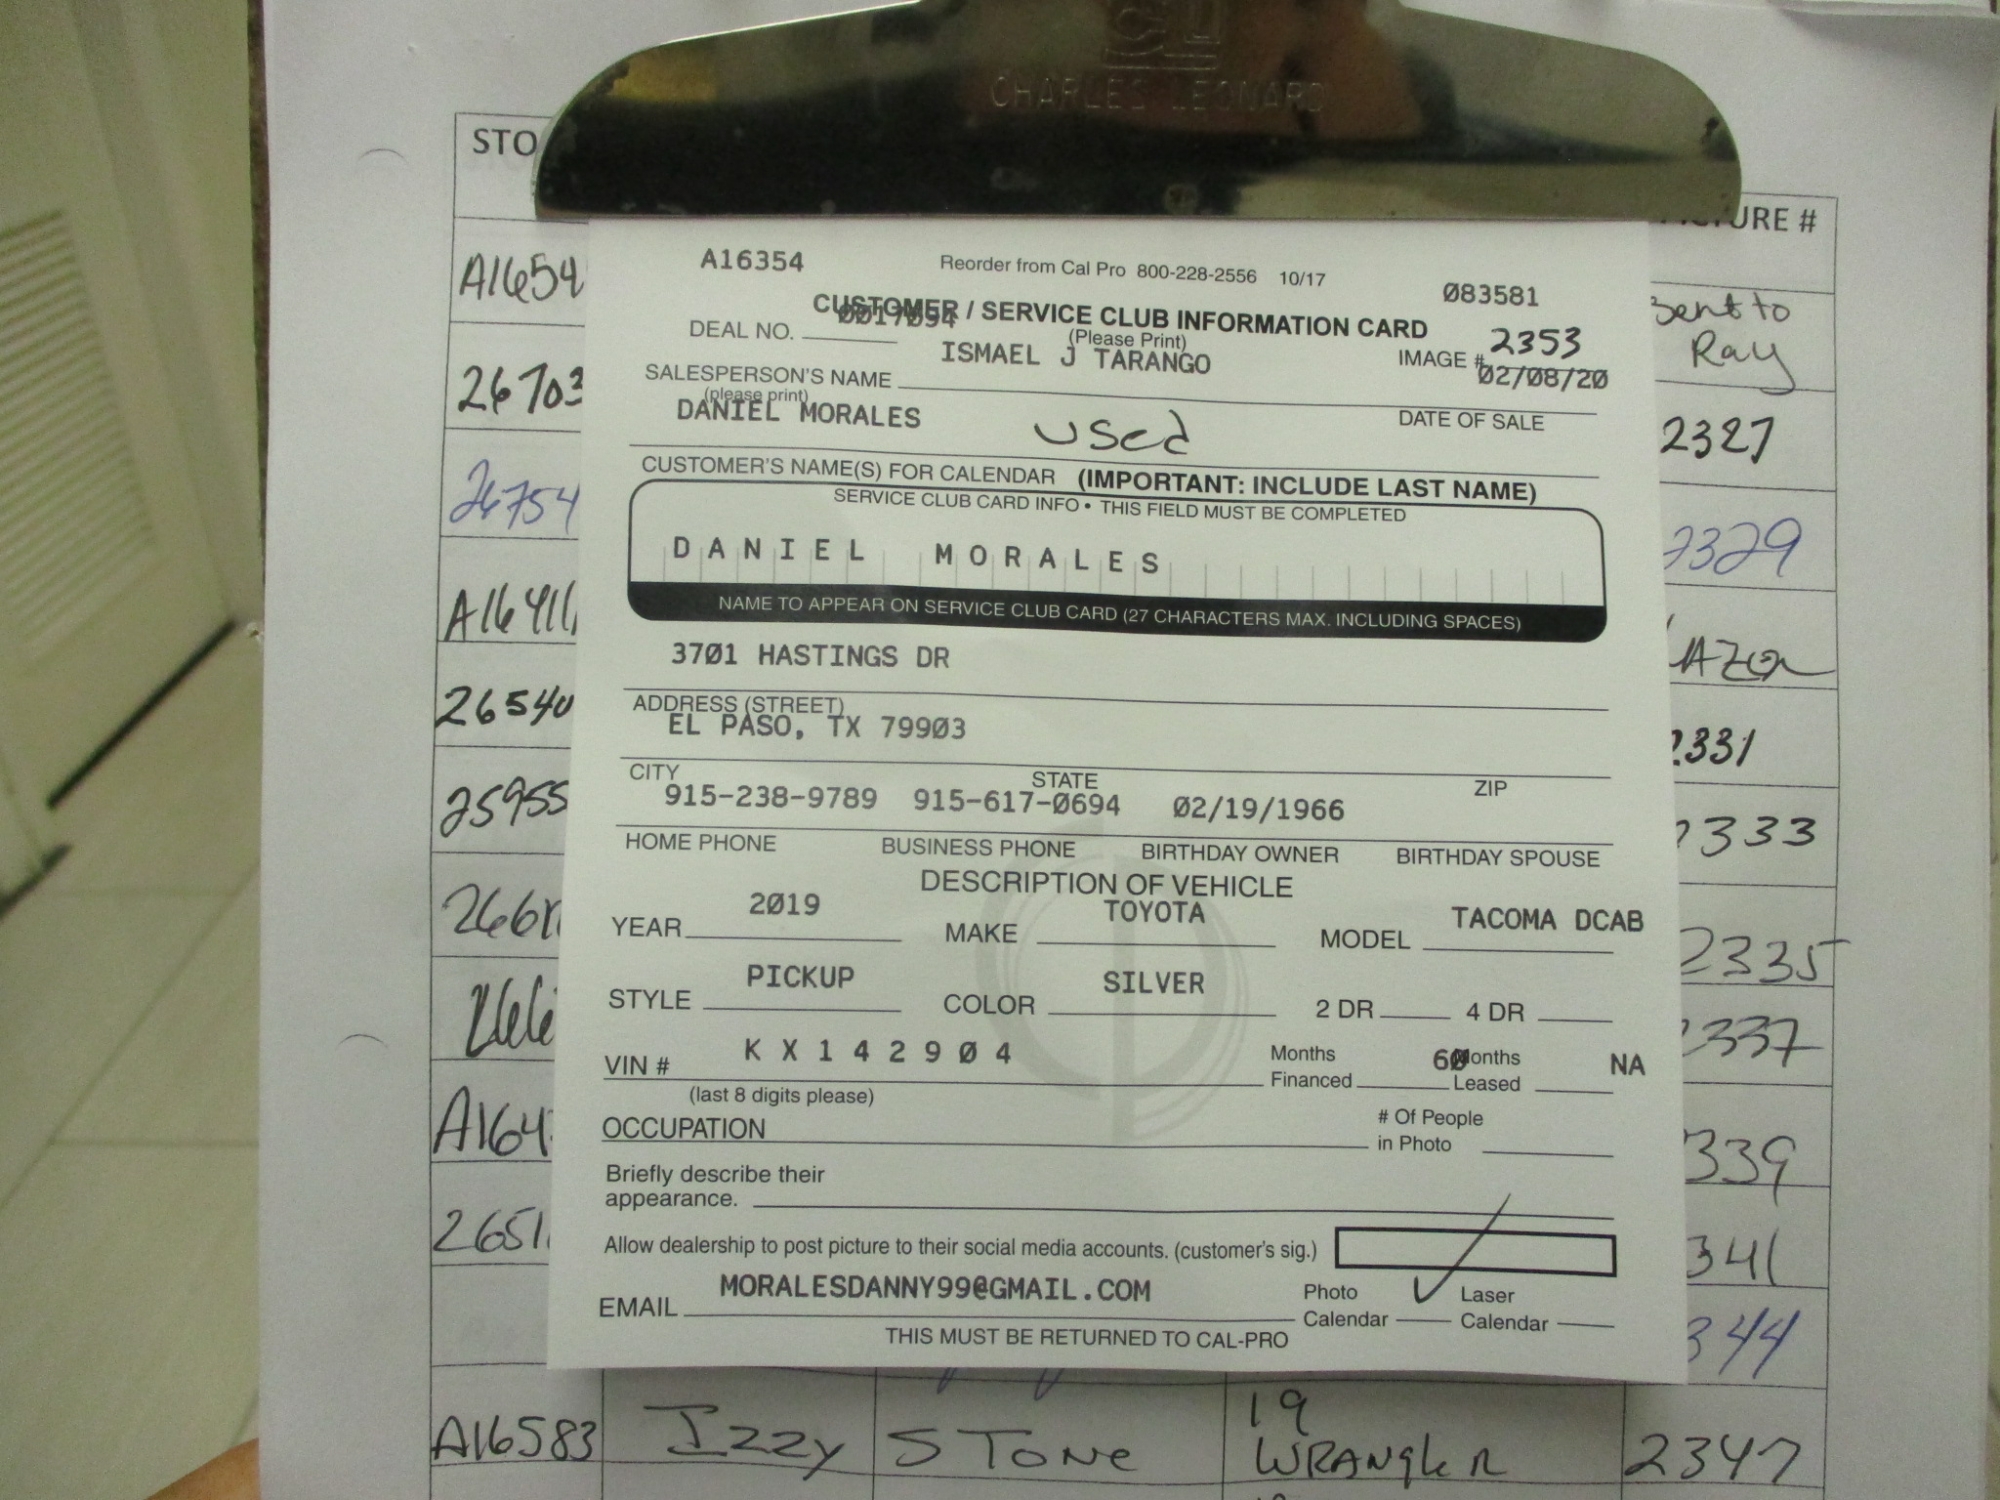 CHARLES LEONARD
STO
URE #
A16354
Reorder from Cal Pro 800-228-2556 10/17
083581
CUSTOMER / SERVICE CLUB INFORMATION CARD
(Please Print)
DEAL NO.
IMAGE # 2353
ISMAEL J TARANGO
SALESPERSON'S NAME
(please print)
02/08/20
DATE OF SALE
DANIEL MORALES
used
CUSTOMER'S NAME(S) FOR CALENDAR (IMPORTANT: INCLUDE LAST NAME)
SERVICE CLUB CARD INFO • THIS FIELD MUST BE COMPLETED
DANIEL MORALES
NAME TO APPEAR ON SERVICE CLUB CARD (27 CHARACTERS MAX. INCLUDING SPACES)
3701 HASTINGS DR
ADDRESS (STREET)
EL PASO, TX 79903
CITY STATE ZIP
915-238-9789 915-617-0694 02/19/1966
HOME PHONE BUSINESS PHONE BIRTHDAY OWNER BIRTHDAY SPOUSE
DESCRIPTION OF VEHICLE
YEAR 2019 MAKE TOYOTA MODEL TACOMA DCAB
STYLE PICKUP COLOR SILVER 2 DR 4 DR
VIN # K X 1 4 2 9 0 4
(last 8 digits please)
Months Financed 60 Months Leased NA
OCCUPATION
# Of People in Photo
Briefly describe their
appearance.
Allow dealership to post picture to their social media accounts. (customer's sig.)
EMAIL MORALESDANNY99@GMAIL.COM
Photo Calendar Laser Calendar
THIS MUST BE RETURNED TO CAL-PRO
A1654
sent to
Ray
26703
2327
26754
2329
A16411
26540
2331
25955
2333
2661
2335
266
2337
A164
339
2651
341
344
A16583 Izzy STONE 19 WRANGLER 2347